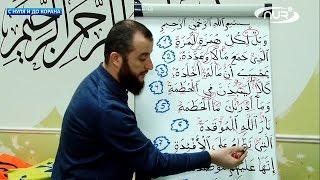 С НУЛЯ И ДО КОРАНА
NUR
بسم الله الرحمن الرحيم
وَيْلٌ لِكُلِّ هُمَزَةٍ لُمَزَةٍ
الَّذِي جَمَعَ مَالًا وَعَدَّدَهُ
يَحْسَبُ أَنَّ مَالَهُ أَخْلَدَهُ
كَلَّا لَيُنْبَذَنَّ فِي الْحُطَمَةِ
وَمَا أَدْرَاكَ مَا الْحُطَمَةُ
نَارُ اللَّهِ الْمُوقَدَةُ
الَّتِي تَطَّلِعُ عَلَى الْأَفْئِدَةِ
إِنَّهَا عَلَيْهِمْ